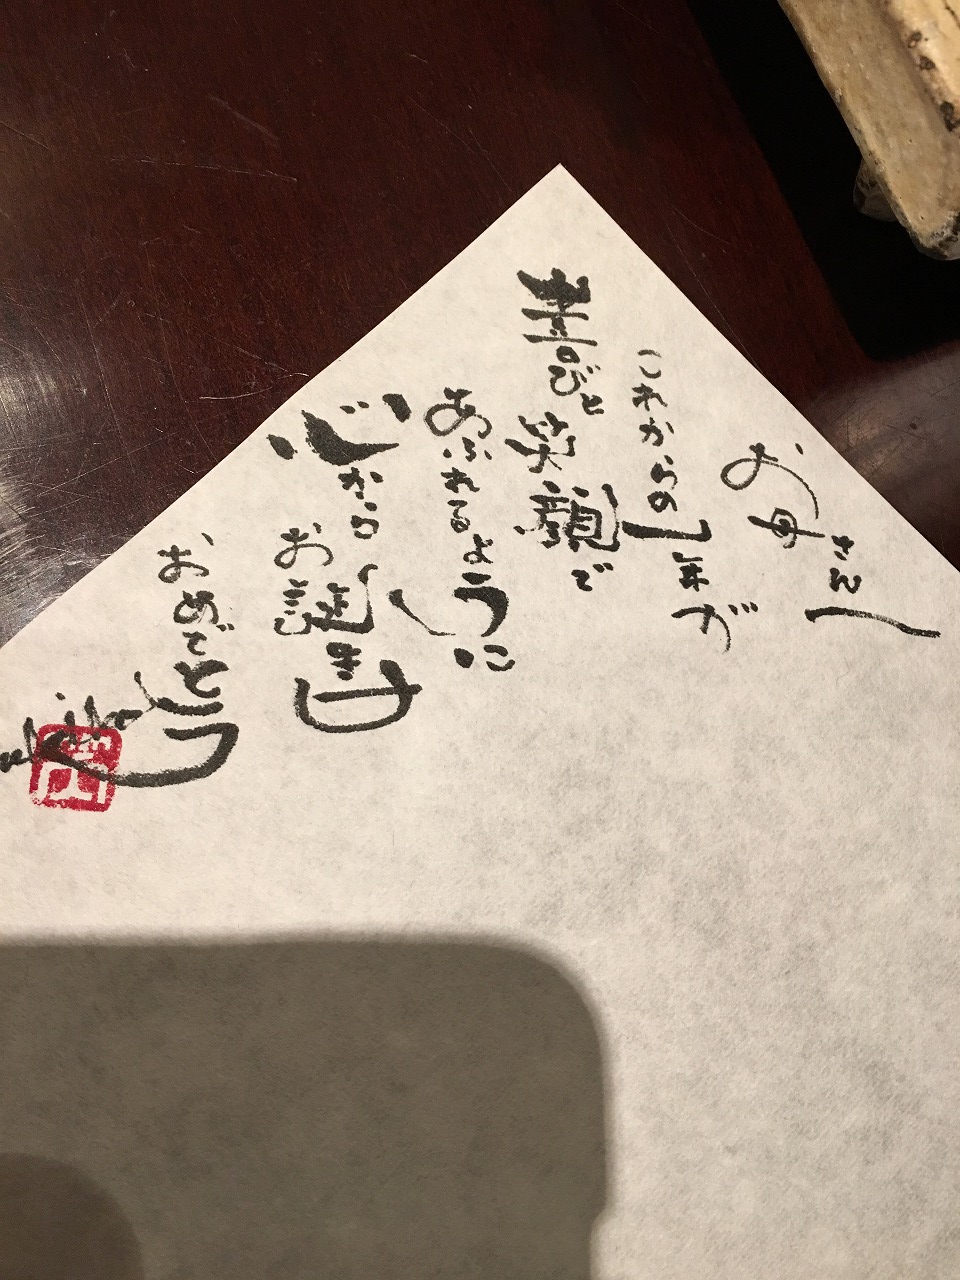 お母さん
これからの1年が
喜びと笑顔で
あふれるように
心からお誕生日
おめでとう